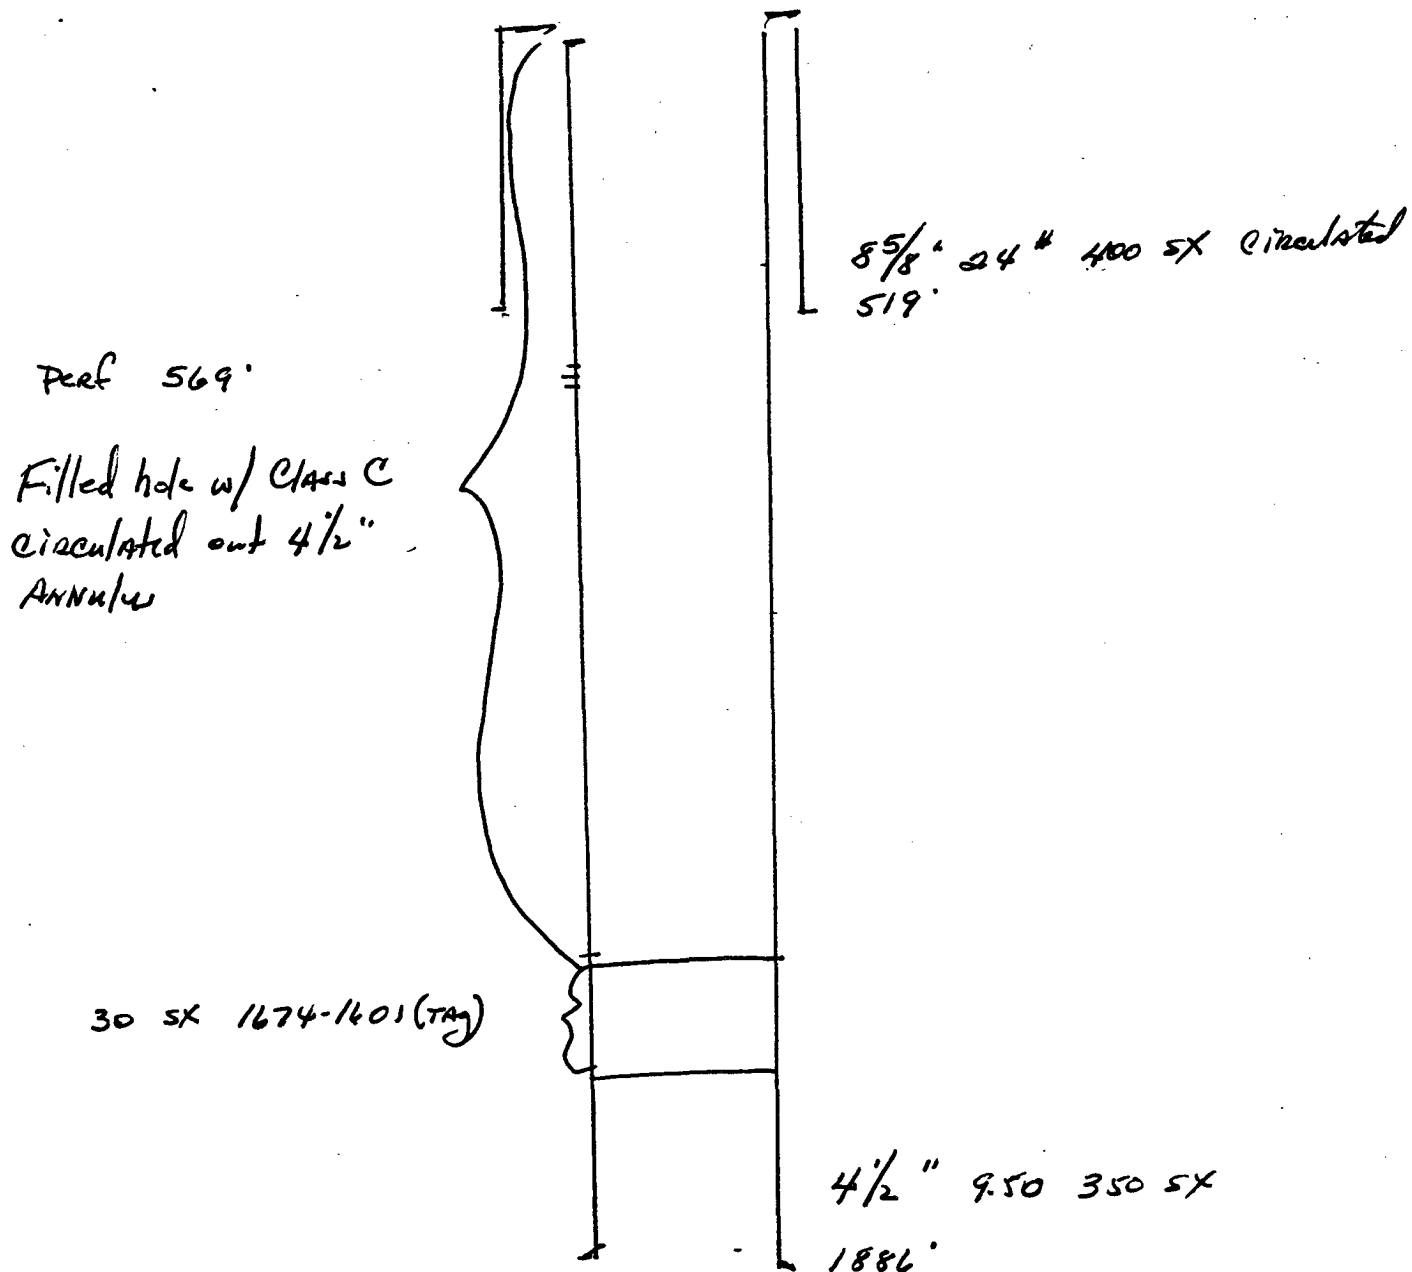 8 5/8" 24# 400 SX Circulated
519'
Perf 569'
Filled hole w/ Class C
circulated out 4 1/2"
Annulus
30 SX 1674-1601 (TAg)
4 1/2" 9.50 350 SX
1886'